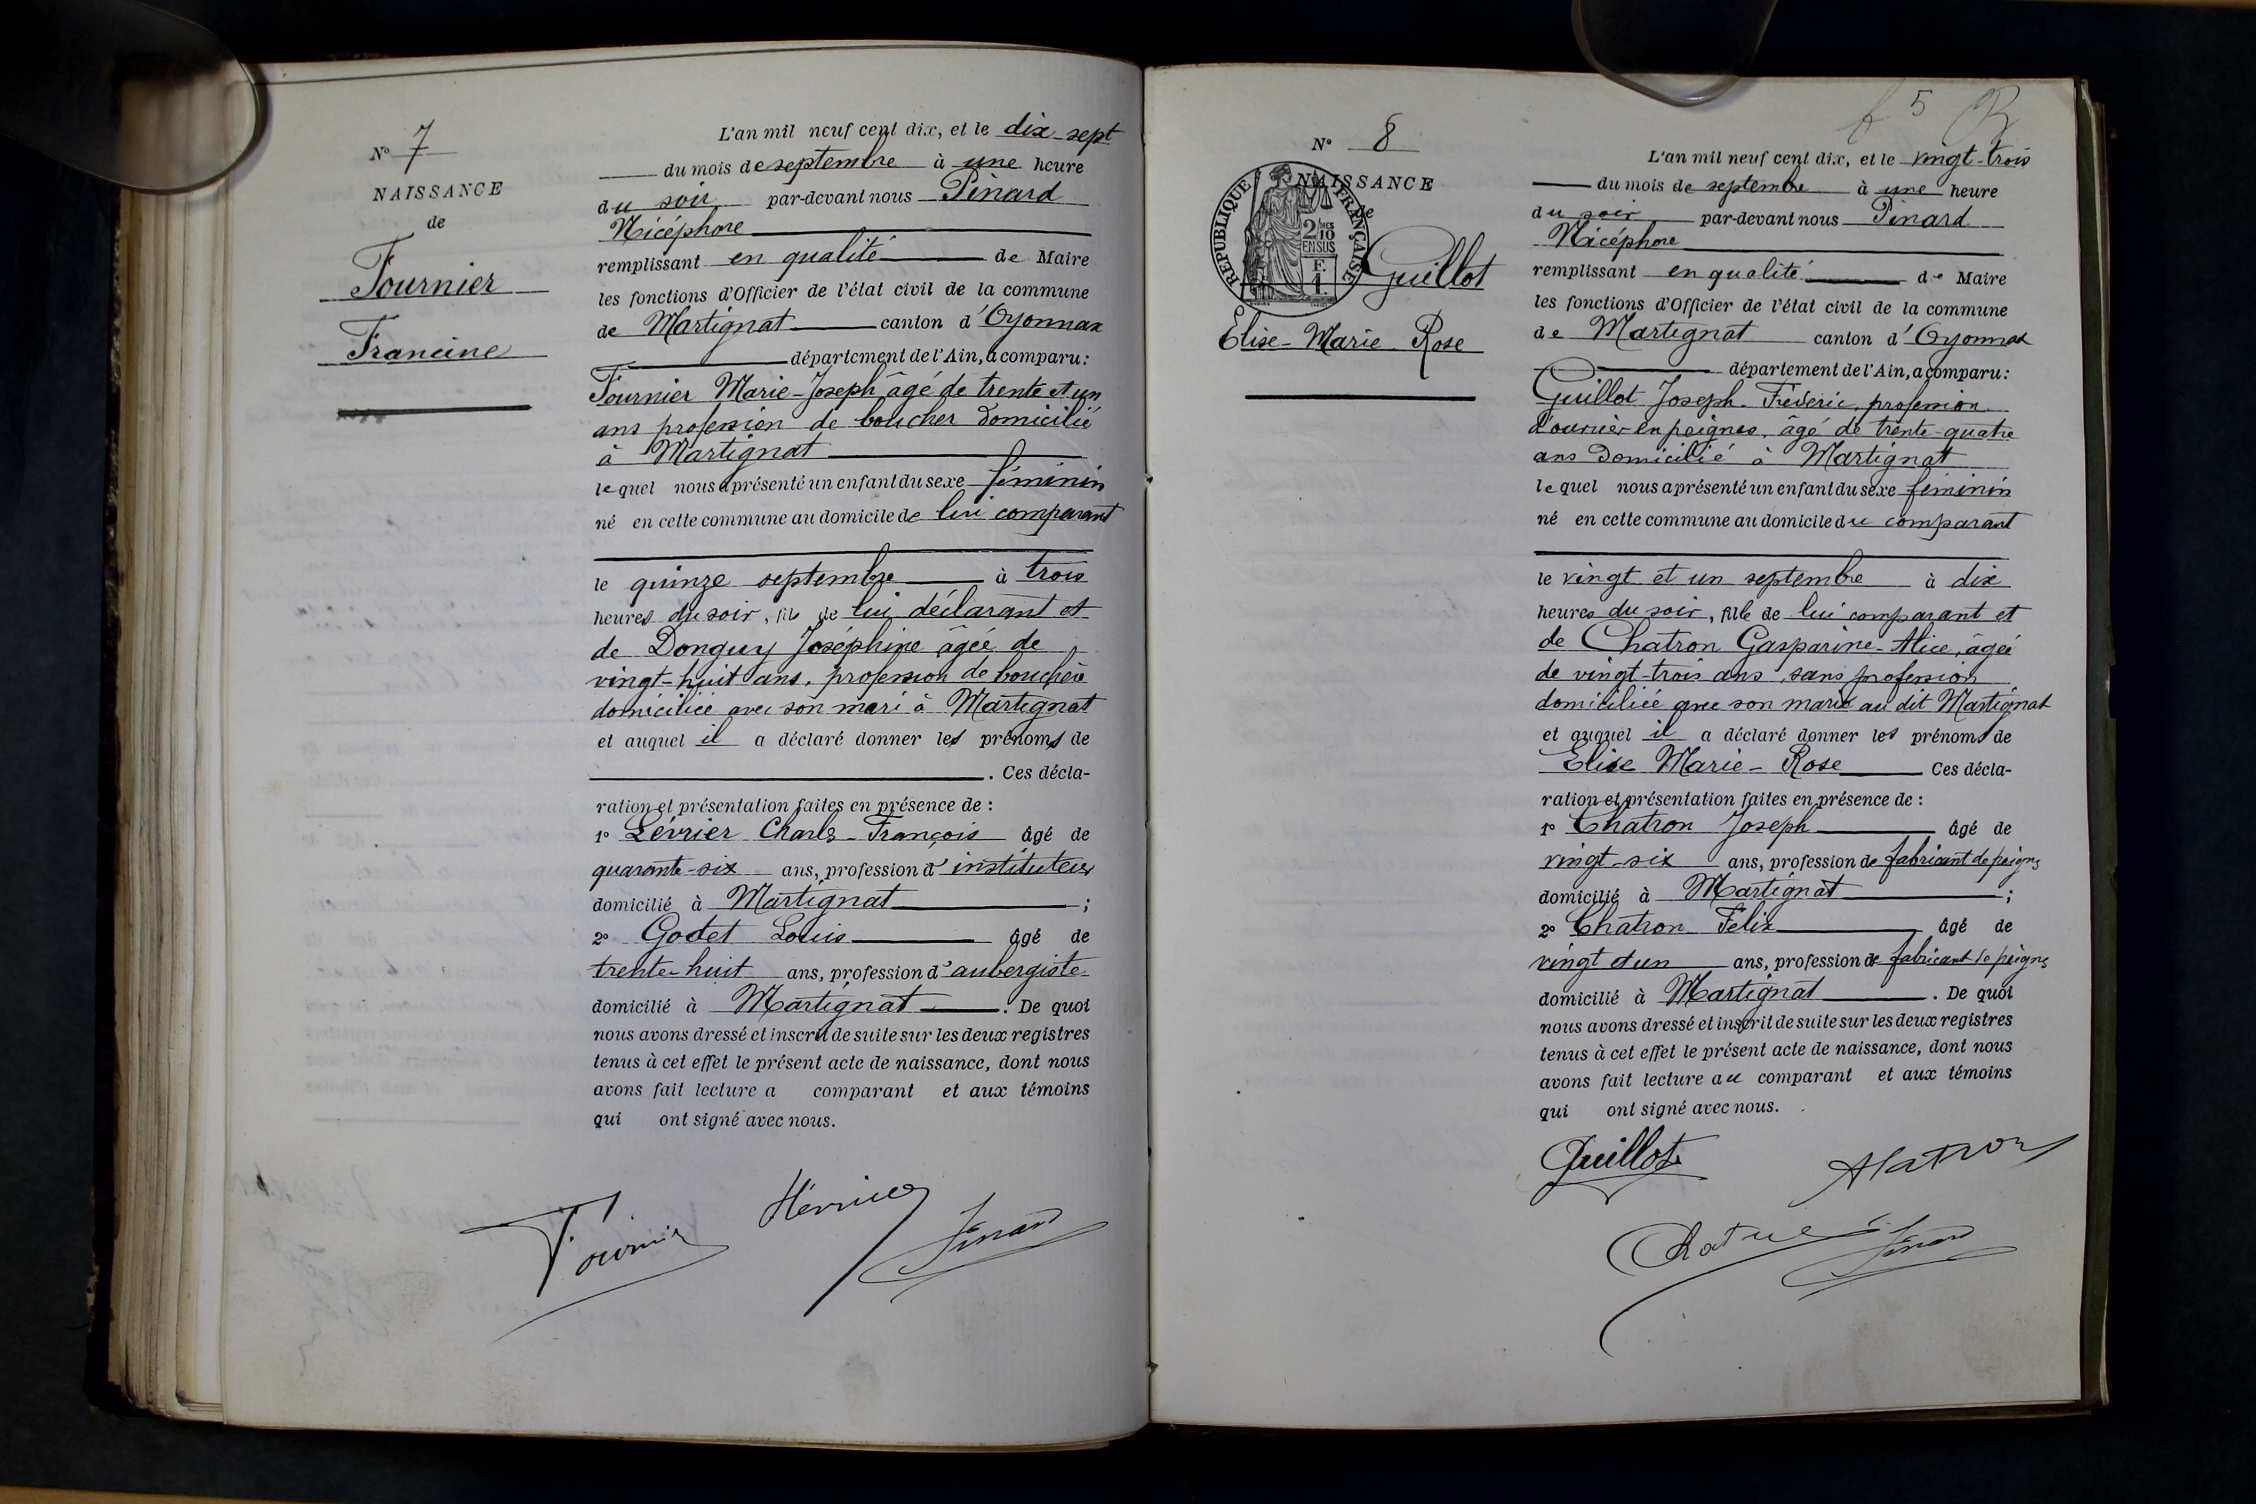 N° 7
NAISSANCE
de
Fournier
Francine
L'an mil neuf cent dix, et le dix-sept
du mois de septembre à une heure
du soir par-devant nous Pinard
Nicéphore
remplissant en qualité de Maire
les fonctions d'Officier de l'état civil de la commune
de Martignat canton d'Oyonnax
département de l'Ain, a comparu :
Fournier Marie-Joseph âgé de trente et un
ans profession de boucher domicilié
à Martignat
lequel nous a présenté un enfant du sexe féminin
né en cette commune au domicile de lui comparant
le quinze septembre à trois
heures du soir, fils de lui déclarant et
de Donguy Joséphine âgée de
vingt-huit ans, profession de bouchère
domiciliée avec son mari à Martignat
et auquel il a déclaré donner les prénoms de
. Ces décla-
ration et présentation faites en présence de :
1° Lévrier Charles-François âgé de
quarante-six ans, profession d'instituteur
domicilié à Martignat ;
2° Godet Louis âgé de
trente-huit ans, profession d'aubergiste
domicilié à Martignat . De quoi
nous avons dressé et inscrit de suite sur les deux registres
tenus à cet effet le présent acte de naissance, dont nous
avons fait lecture a comparant et aux témoins
qui ont signé avec nous.
Fournier
Pinard
5
N° 8
NAISSANCE
de
RÉPUBLIQUE FRANÇAISE
2/10
EN SUS
F.
1.
Guillot
Elise-Marie Rose
L'an mil neuf cent dix, et le vingt-trois
du mois de septembre à une heure
du soir par-devant nous Pinard
Nicéphore
remplissant en qualité de Maire
les fonctions d'Officier de l'état civil de la commune
de Martignat canton d'Oyonnax
département de l'Ain, a comparu :
Guillot Joseph-Fréderic, profession
d'ouvrier en peignes, âgé de trente-quatre
ans domicilié à Martignat
lequel nous a présenté un enfant du sexe féminin
né en cette commune au domicile du comparant
le vingt et un septembre à dix
heures du soir, fille de lui comparant et
de Chatron Gasparine-Alice, âgée
de vingt-trois ans, sans profession
domiciliée avec son mari au dit Martignat
et auquel il a déclaré donner les prénoms de
Elise Marie-Rose Ces décla-
ration et présentation faites en présence de :
1° Chatron Joseph âgé de
vingt-six ans, profession de fabricant de peignes
domicilié à Martignat ;
2° Chatron Felix âgé de
vingt et un ans, profession de fabricant de peignes
domicilié à Martignat . De quoi
nous avons dressé et inscrit de suite sur les deux registres
tenus à cet effet le présent acte de naissance, dont nous
avons fait lecture au comparant et aux témoins
qui ont signé avec nous.
Guillot
Pinard